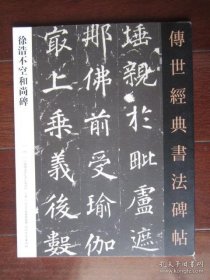 傳世經典書法碑帖
埵親於毗盧遮
那佛前受瑜伽
最上乘義後數
徐浩不空和尚碑